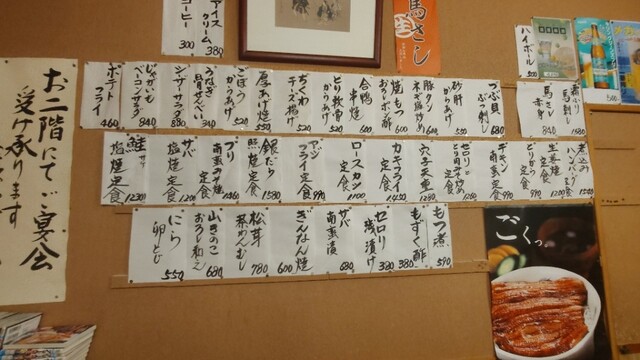 アイスクリーム 380
コーヒー 300
馬さし
生
ハイボール 500
お二階にてご宴会
受け承ります
つぶ貝ぶつ刺し 680
砂肝からあげ 550
豚タンネギ塩炒め 680
焼もつおろポン酢
合鴨串焼 600
とり軟骨からあげ 520
ちくわチーズ揚げ 520
厚あげ焼 550
ごぼうからあげ 520
うなぎ骨せんべい 340
シーザーサラダ
じゃがいもベーコンサラダ 840
ポテトフライ 460
馬刺し 1680
馬さし赤身 840
煮込みハンバーグ定食
生姜焼定食 1260
とりから定食
チキン南蛮定食
穴子天重 1280
カキフライ定食 1450
ロースカツ定食 1100
アジフライ定食 990
銀だら照焼定食 1580
ブリ南蛮定食
サバ塩焼定食
鮭塩焼定食 1230
もつ煮 590
もずく酢 380
セロリ浅漬け 380
サバ南蛮漬 680
ぎんなん焼 600
松茸茶わんむし 780
山きのこおろし和え 680
にら卵とじ 550
ごくっ